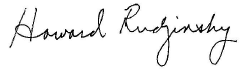 Howard Rudzinsky